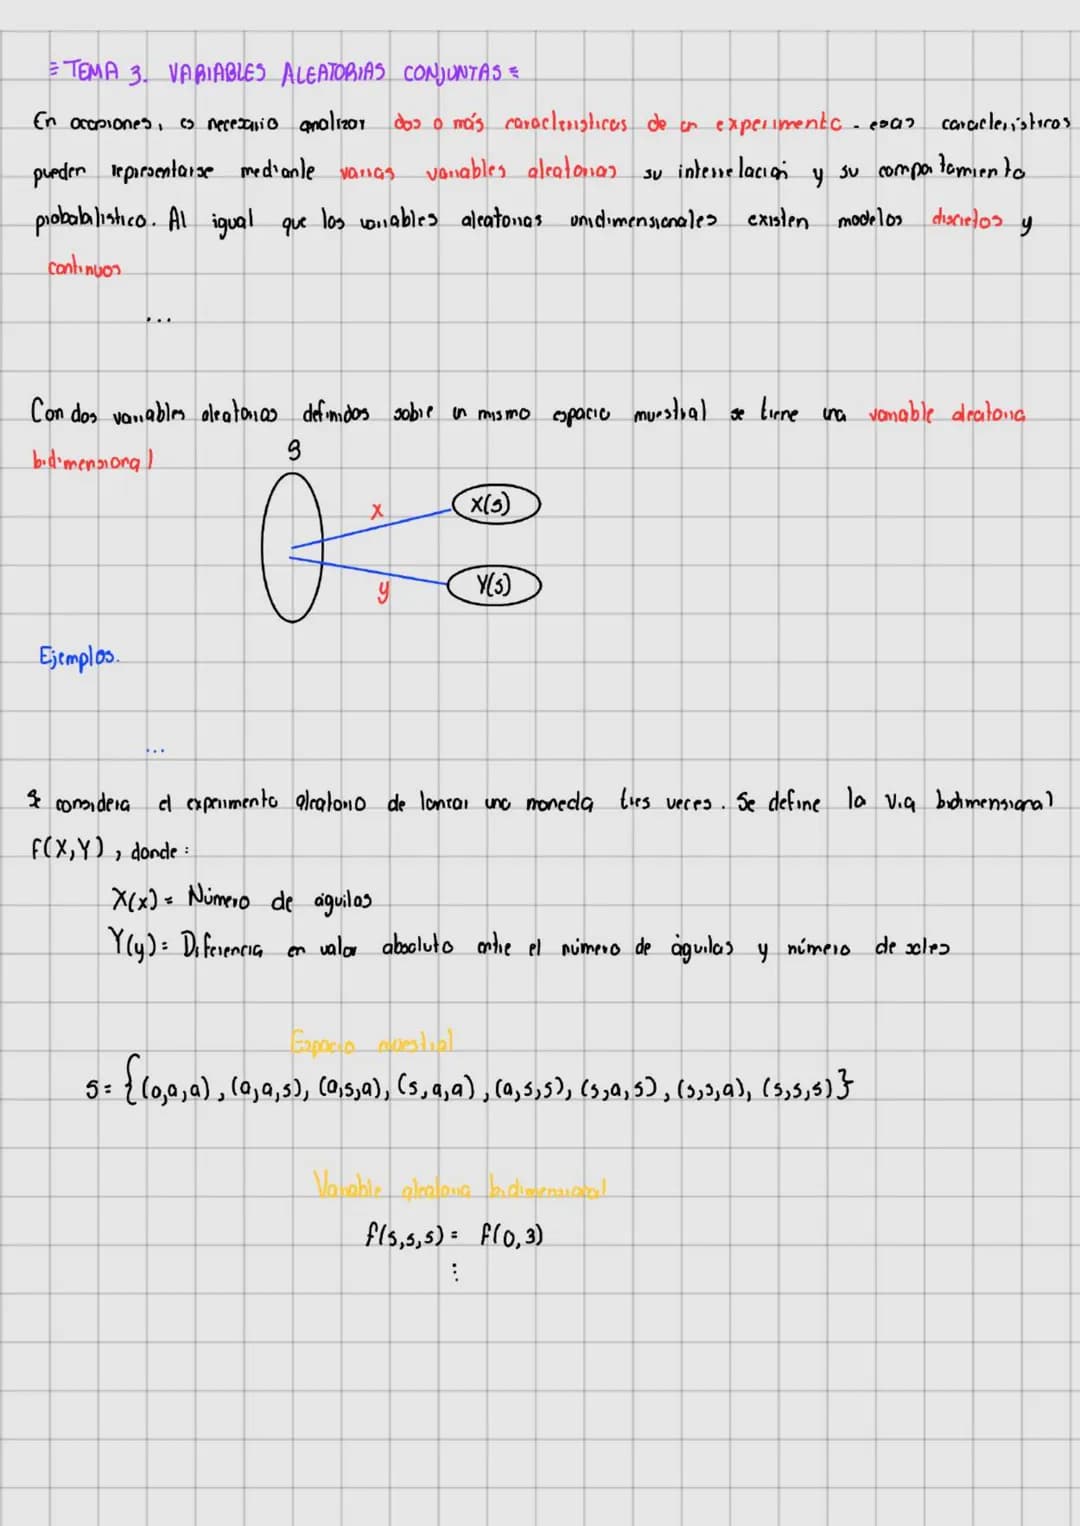 = TEMA 3. VARIABLES ALEATORIAS CONJUNTAS =
En ocasiones, es necesario analizar dos o más características de un experimento. esas características
pueden representarse mediante varias variables aleatorias su interrelación y su comportamiento
probabalístico. Al igual que las variables aleatorias unidimensionales existen modelos discretos y
continuos
...
Con dos variables aleatorias definidas sobre un mismo espacio muestral se tiene una variable aleatoria
bidimensional
S
X
X(s)
y
Y(s)
Ejemplos.
...
Se considera el experimento aleatorio de lanzar una moneda tres veces. Se define la v.a bidimensional
f(X,Y), donde:
X(x) = Número de águilas
Y(y) = Diferencia en valor absoluto entre el número de águilas y número de soles
Espacio muestral
S = {(a,a,a), (a,a,s), (a,s,a), (s,a,a), (a,s,s), (s,a,s), (s,s,a), (s,s,s)}
Variable aleatoria bidimensional
f(s,s,s) = f(0,3)
⋮